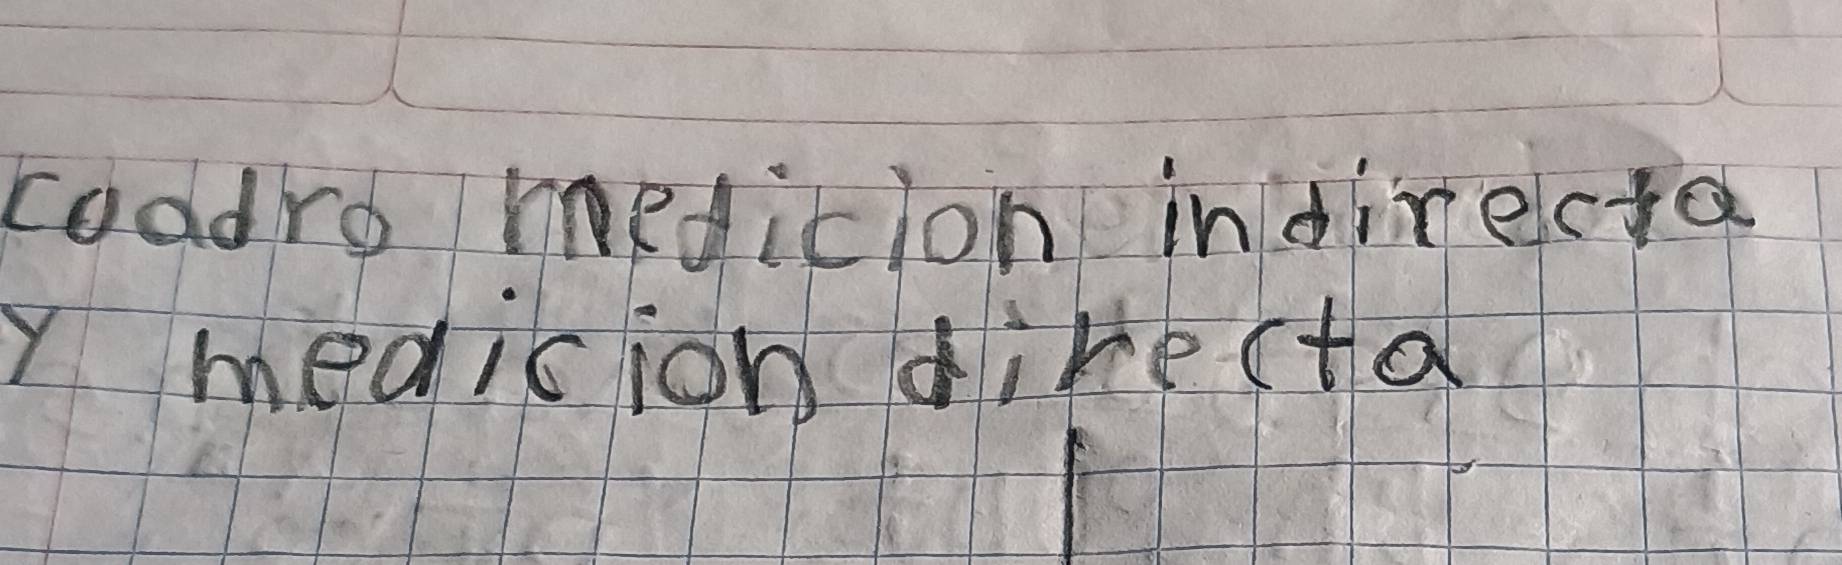 coadro medicion indirecta
y medicion directa